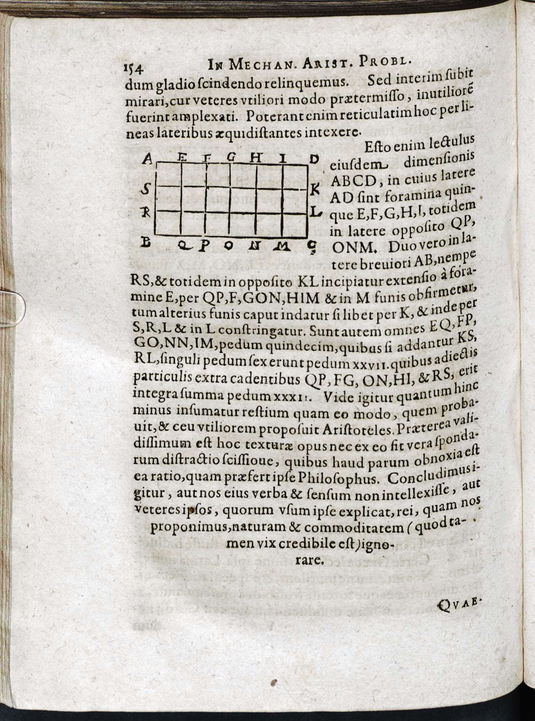 154 IN MECHAN. ARIST. PROBL.
dum gladio scindendo relinquemus. Sed interim subit
mirari, cur veteres vtiliori modo prætermisso, inutiliorē
fuerint amplexati. Poterant enim reticulatim hoc per li-
neas lateribus æquidistantes intexere.
A E F G H I D
S K
R L
B Q P O N M C
Esto enim lectulus
eiusdem dimensionis
ABCD, in cuius latere
AD sint foramina quin-
que E,F,G,H,I, totidem
in latere opposito QP,
ONM. Duo vero in la-
tere breuiori AB, nempe
RS, & totidem in opposito KL incipiatur extensio à fora-
mine E, per QP,F,GON,HIM & in M funis obfirmetur,
tum alterius funis caput indatur si libet per K, & inde per
S,R,L & in L constringatur. Sunt autem omnes EQ,FP,
GO,NN,IM, pedum quindecim, quibus si addantur KS,
RL, singuli pedum sex erunt pedum XXVII. quibus adiectis
particulis extra cadentibus QP, FG, ON,HI, & RS, erit
integra summa pedum XXXII. Vide igitur quantum hinc
minus insumatur restium quam eo modo, quem proba-
uit, & ceu vtiliorem proposuit Aristoteles. Præterea vali-
dissimum est hoc texturæ opus nec ex eo fit vera sponda-
rum distractio scissioue, quibus haud parum obnoxia est
ea ratio, quam præfert ipse Philosophus. Concludimus i-
gitur, aut nos eius verba & sensum non intellexisse, aut
veteres ipsos, quorum vsum ipse explicat, rei, quam nos
proponimus, naturam & commoditatem (quod ta-
men vix credibile est) igno-
rare.
QVAE-